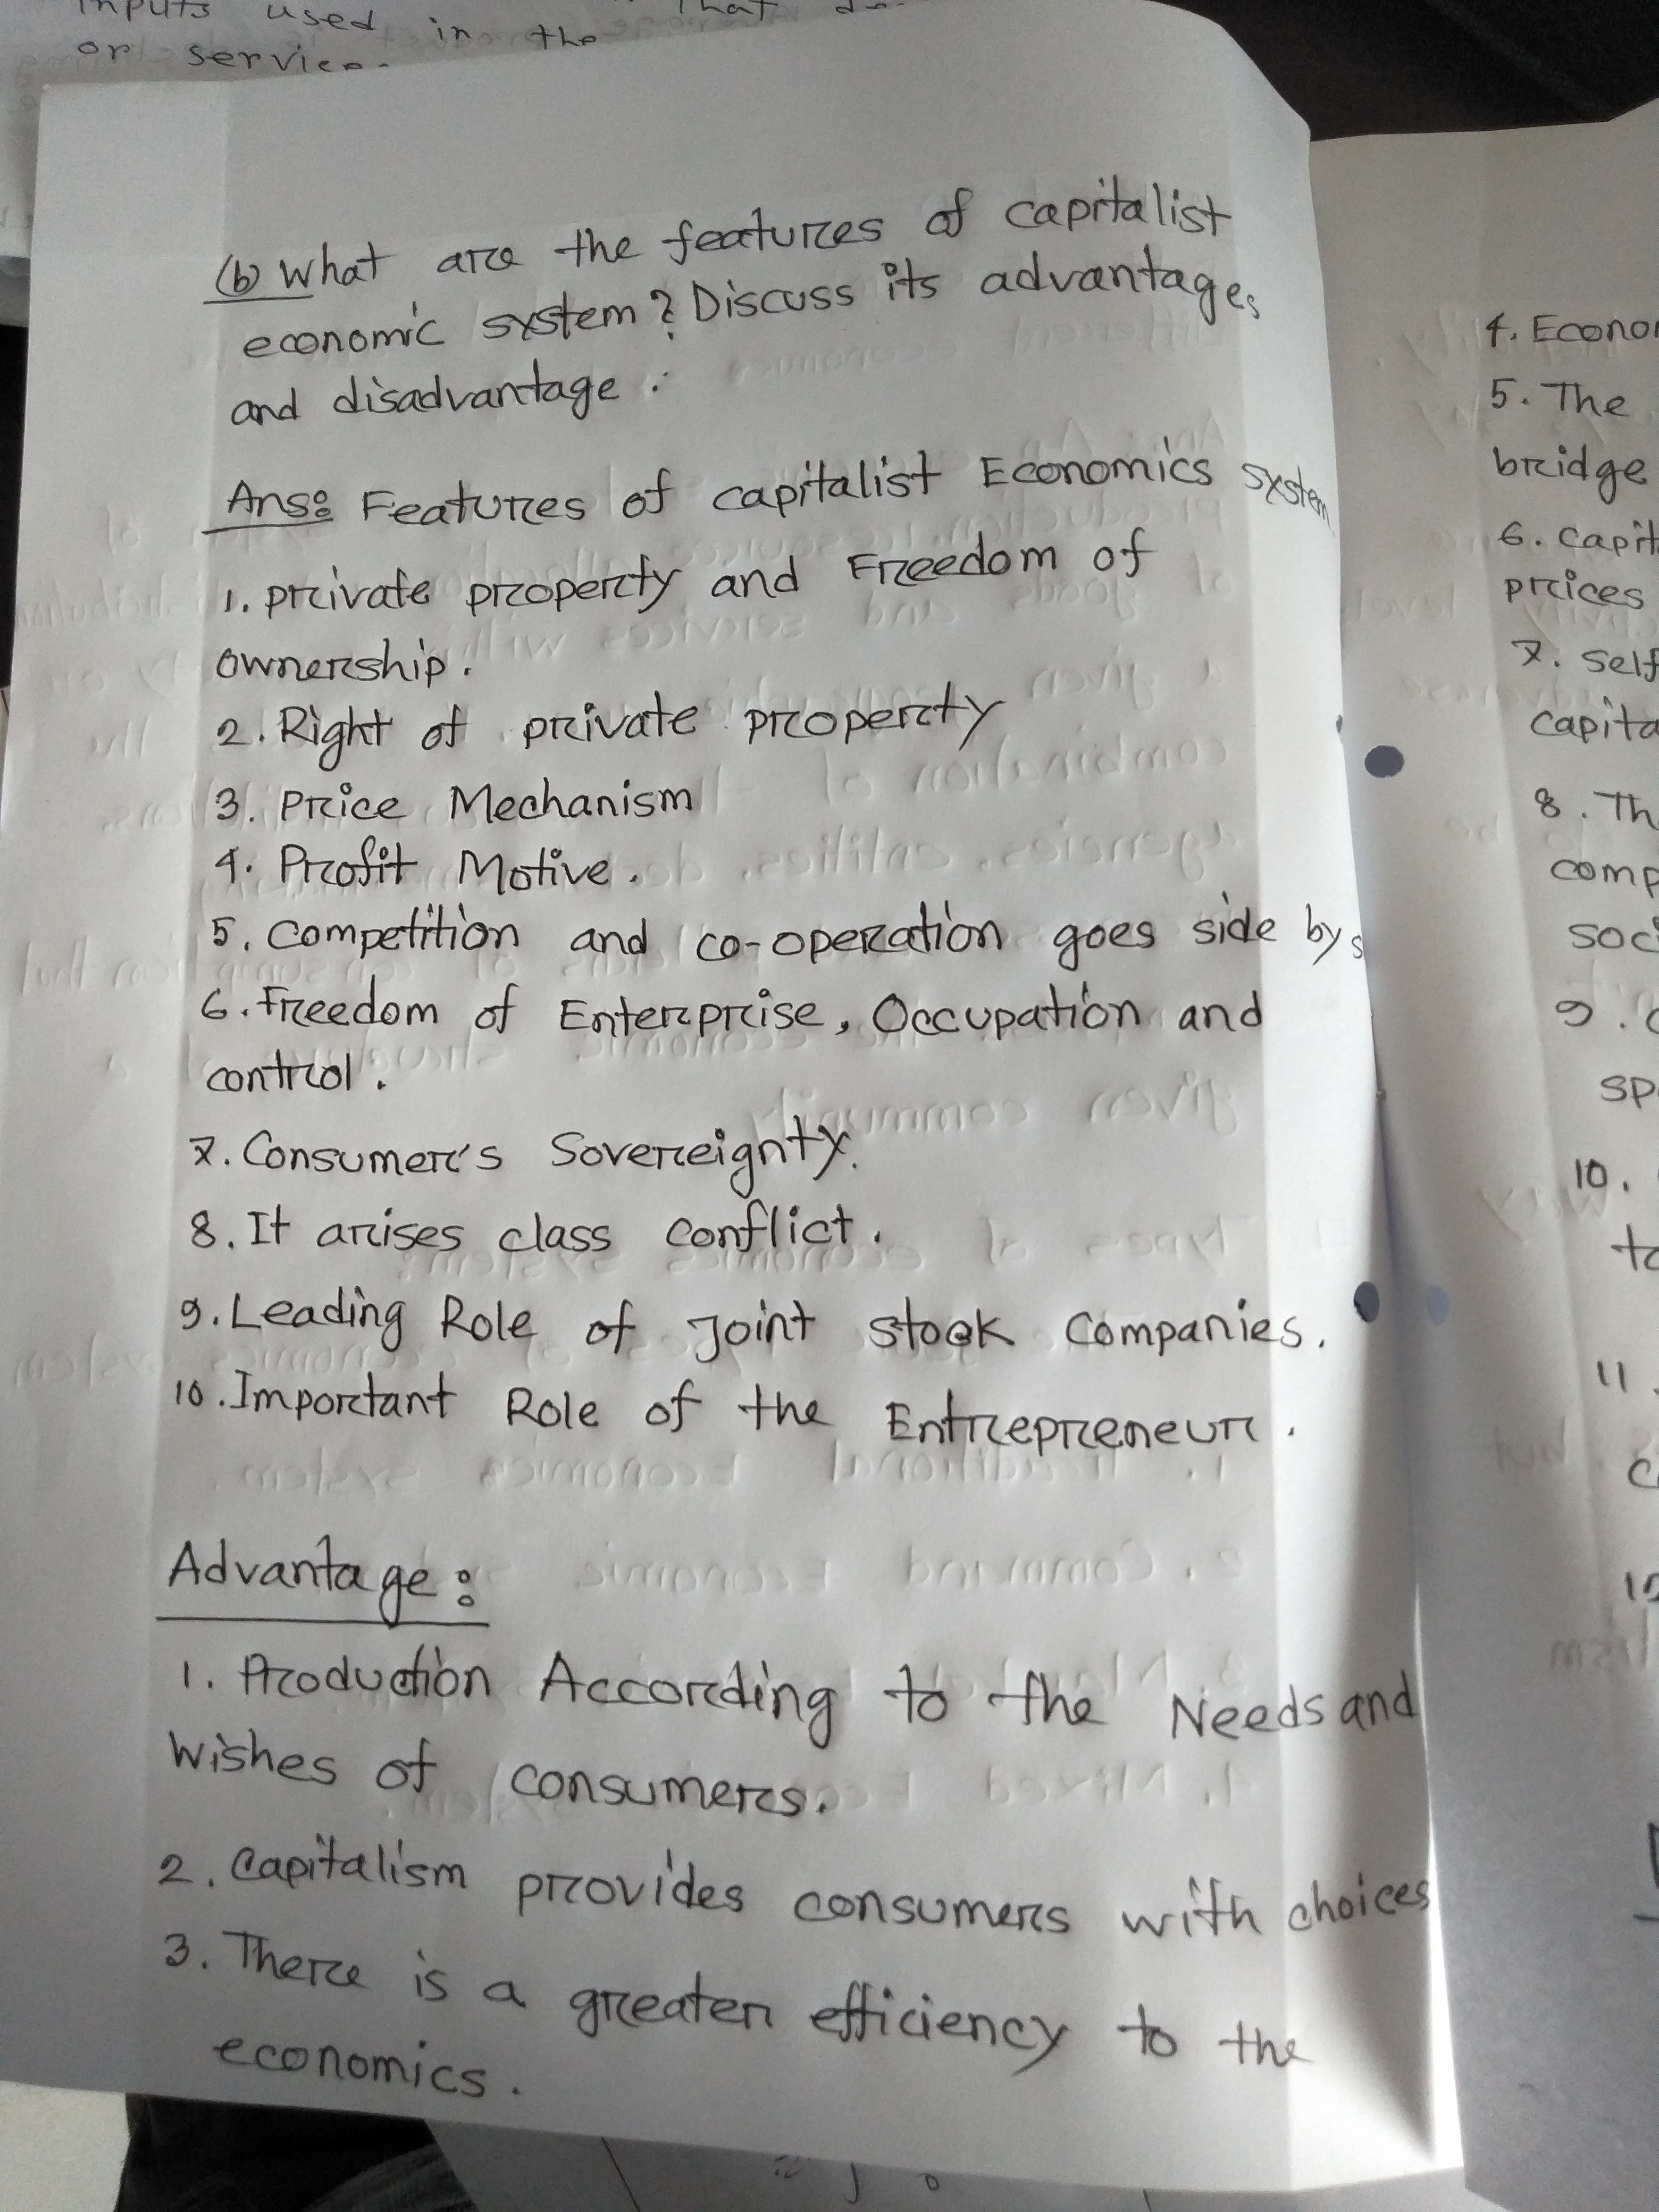 inputs used in the
or
(b) What are the features of capitalist
economic system? Discuss its advantages
and disadvantage.
Ans: Features of capitalist Economics system
1. private property and Freedom of
ownership.
2. Right of private property
3. Price Mechanism
4. Profit Motive.
5. Competition and co-operation goes side by s
6. Freedom of Enterprise, Occupation and
control.
7. Consumer's Sovereignty.
8. It arises class conflict.
9. Leading Role of Joint stock Companies.
10. Important Role of the Entrepreneur.
Advantage:
1. Production According to the Needs and
Wishes of consumers.
2. Capitalism provides consumers with choices
3. There is a greater efficiency to the
economics.
4. Econo
5. The
bridge
6. Capit
prices
7. Self
capita
8. Th
comp
soci
9.
sp
10.
to
11.